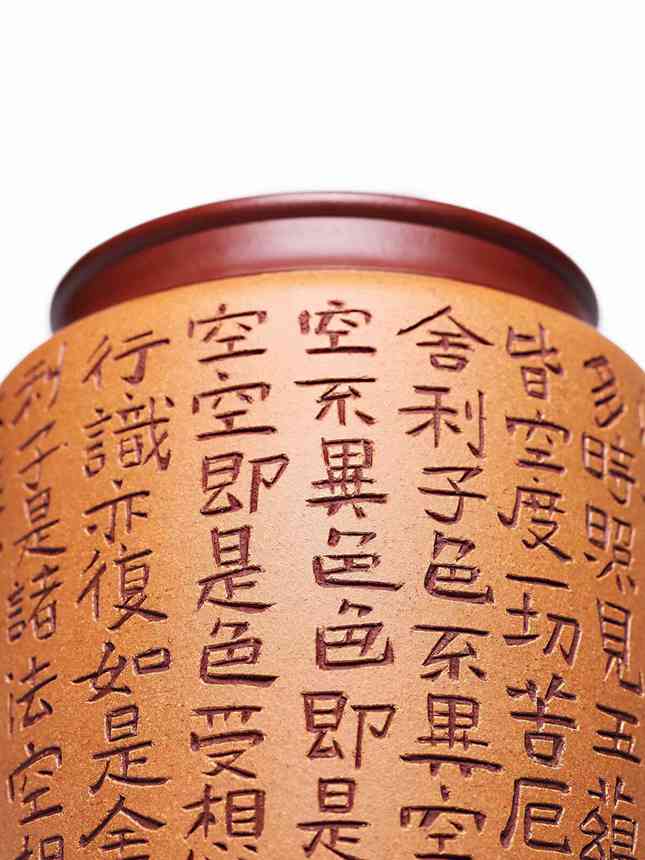 多時照見五蘊
皆空度一切苦厄
舍利子色不異空
空不異色色即是
空空即是色受想
行識亦復如是舍
利子是諸法空相